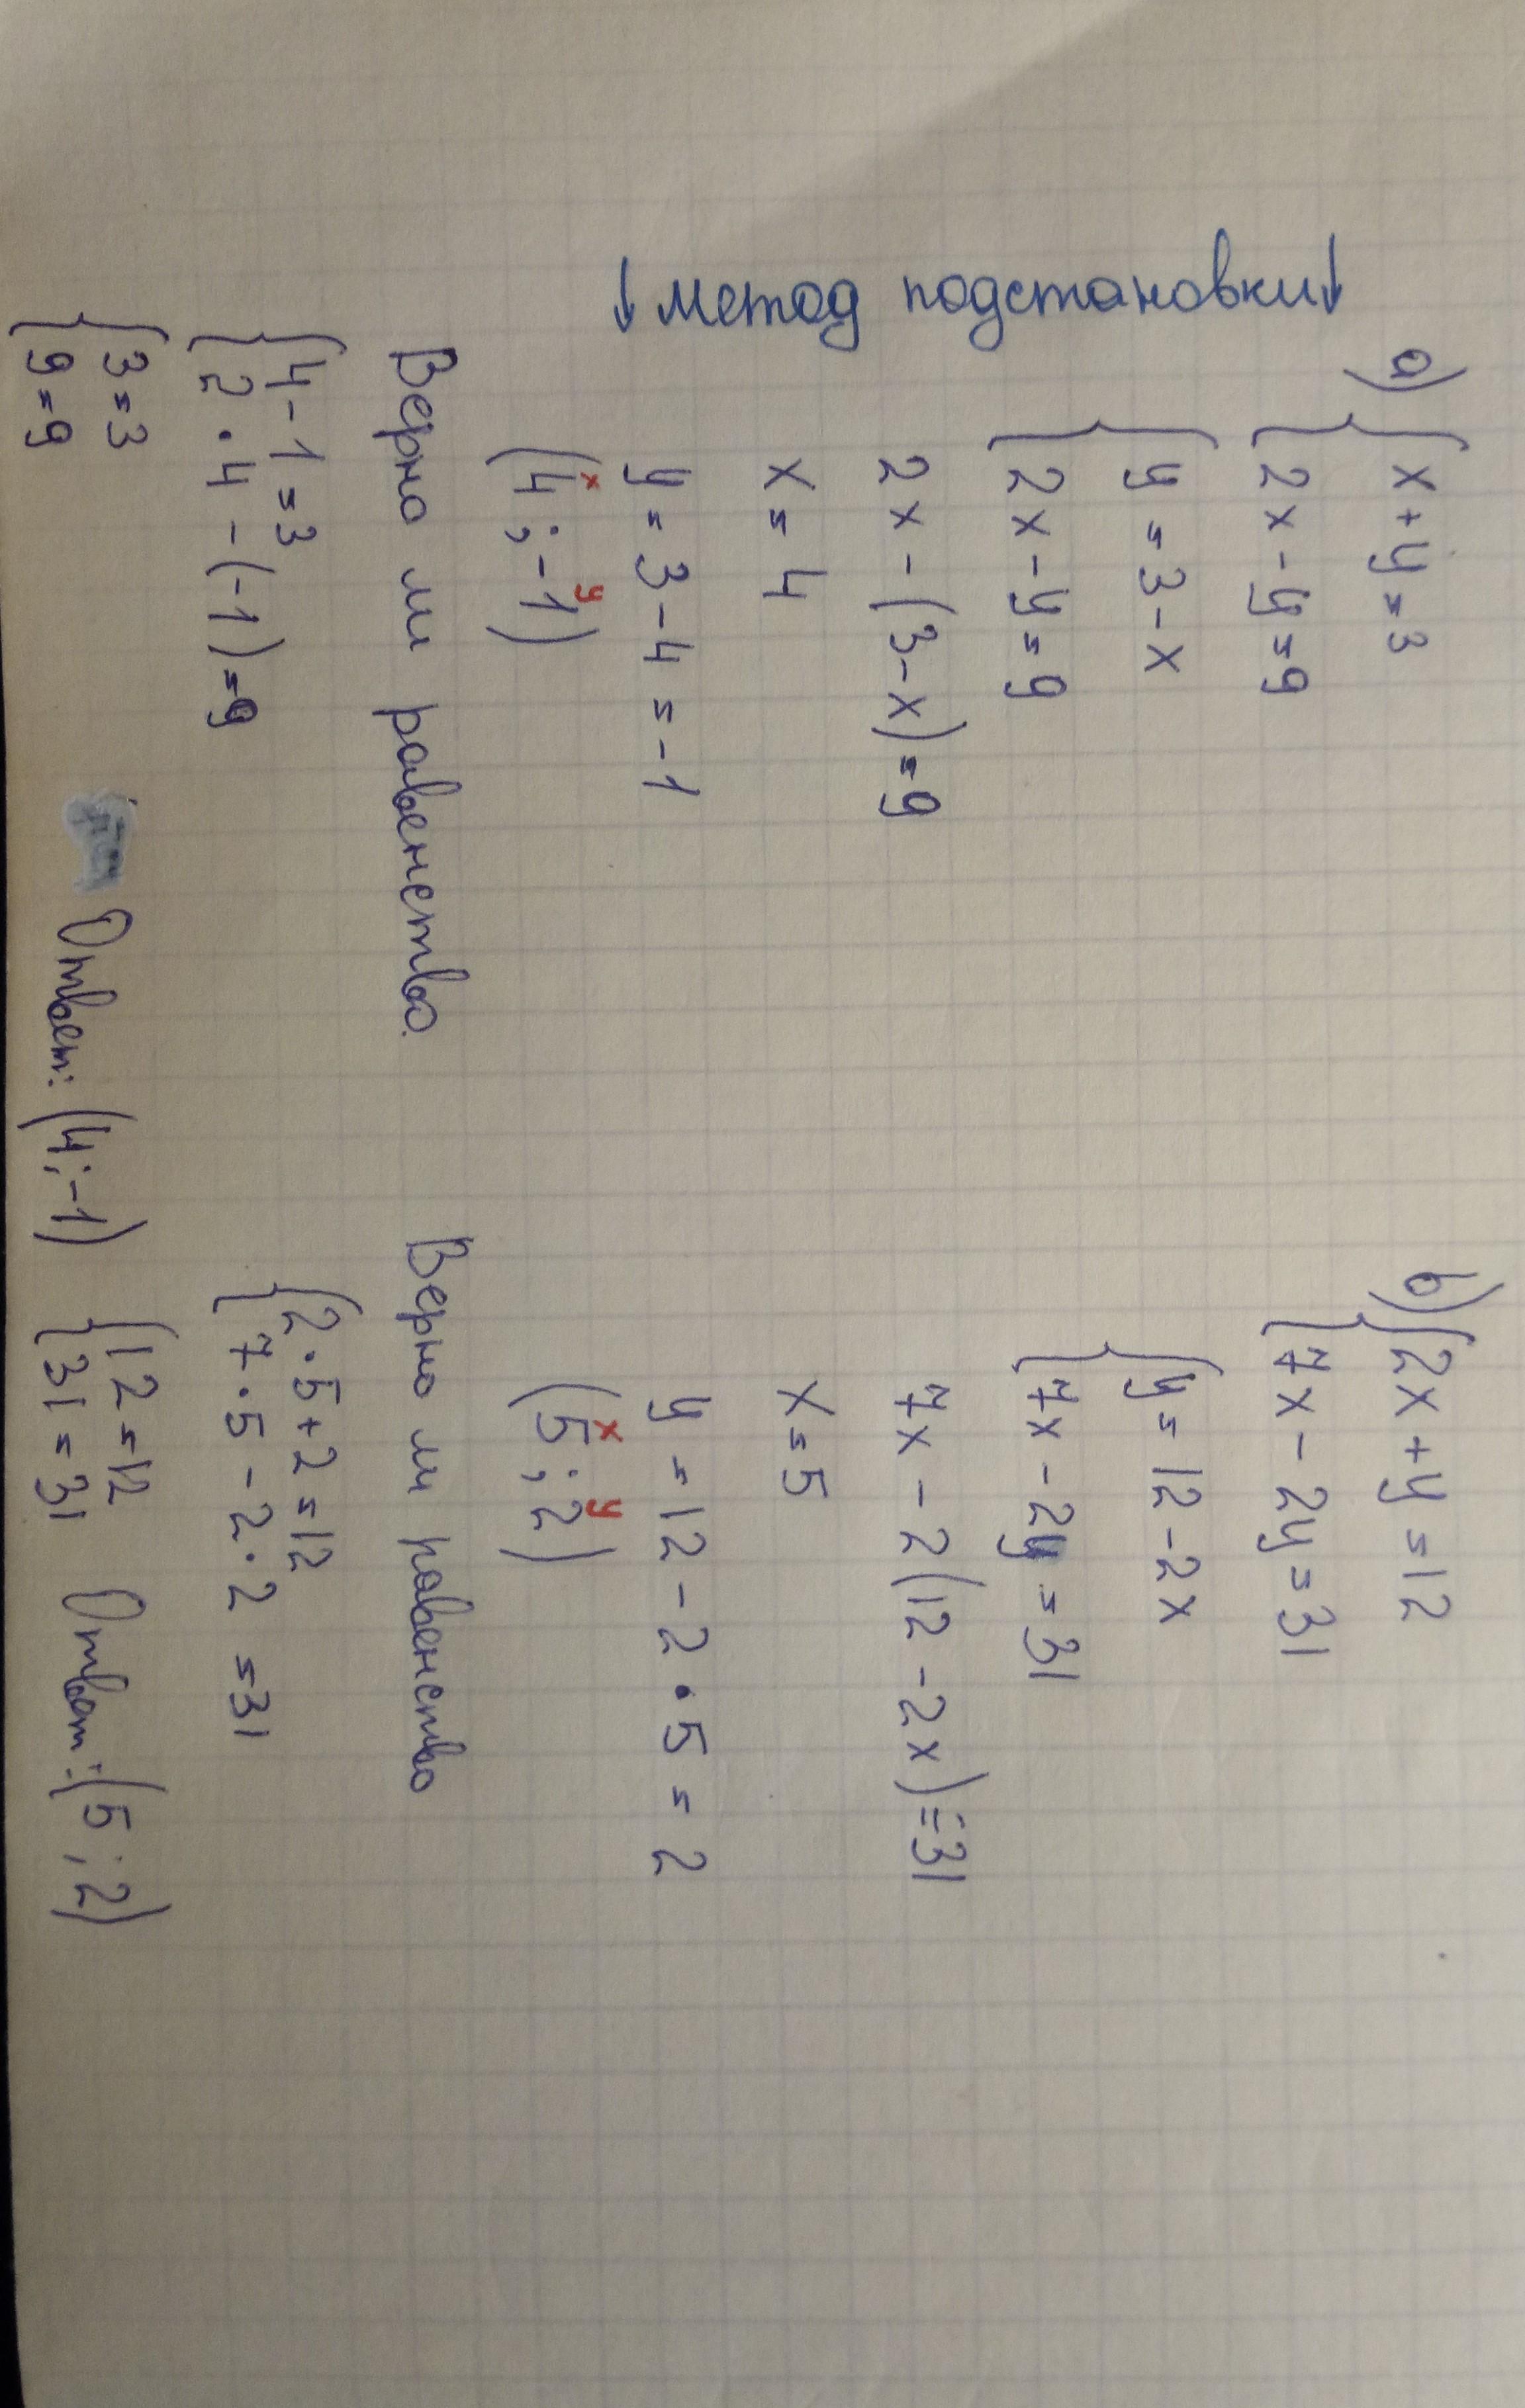 ↓метод подстановки↓
a) { x + y = 3
2x - y = 9
{ y = 3 - x
2x - y = 9
2x - (3 - x) = 9
x = 4
y = 3 - 4 = -1
x y
(4 ; -1)
Верно ли равенство.
{ 4 - 1 = 3
2 · 4 - (-1) = 9
{ 3 = 3
9 = 9
Ответ: (4 ; -1)
b) { 2x + y = 12
7x - 2y = 31
{ y = 12 - 2x
7x - 2y = 31
7x - 2(12 - 2x) = 31
x = 5
y = 12 - 2 · 5 = 2
x y
(5 ; 2)
Верно ли равенство
{ 2 · 5 + 2 = 12
7 · 5 - 2 · 2 = 31
{ 12 = 12
31 = 31
Ответ: (5 ; 2)